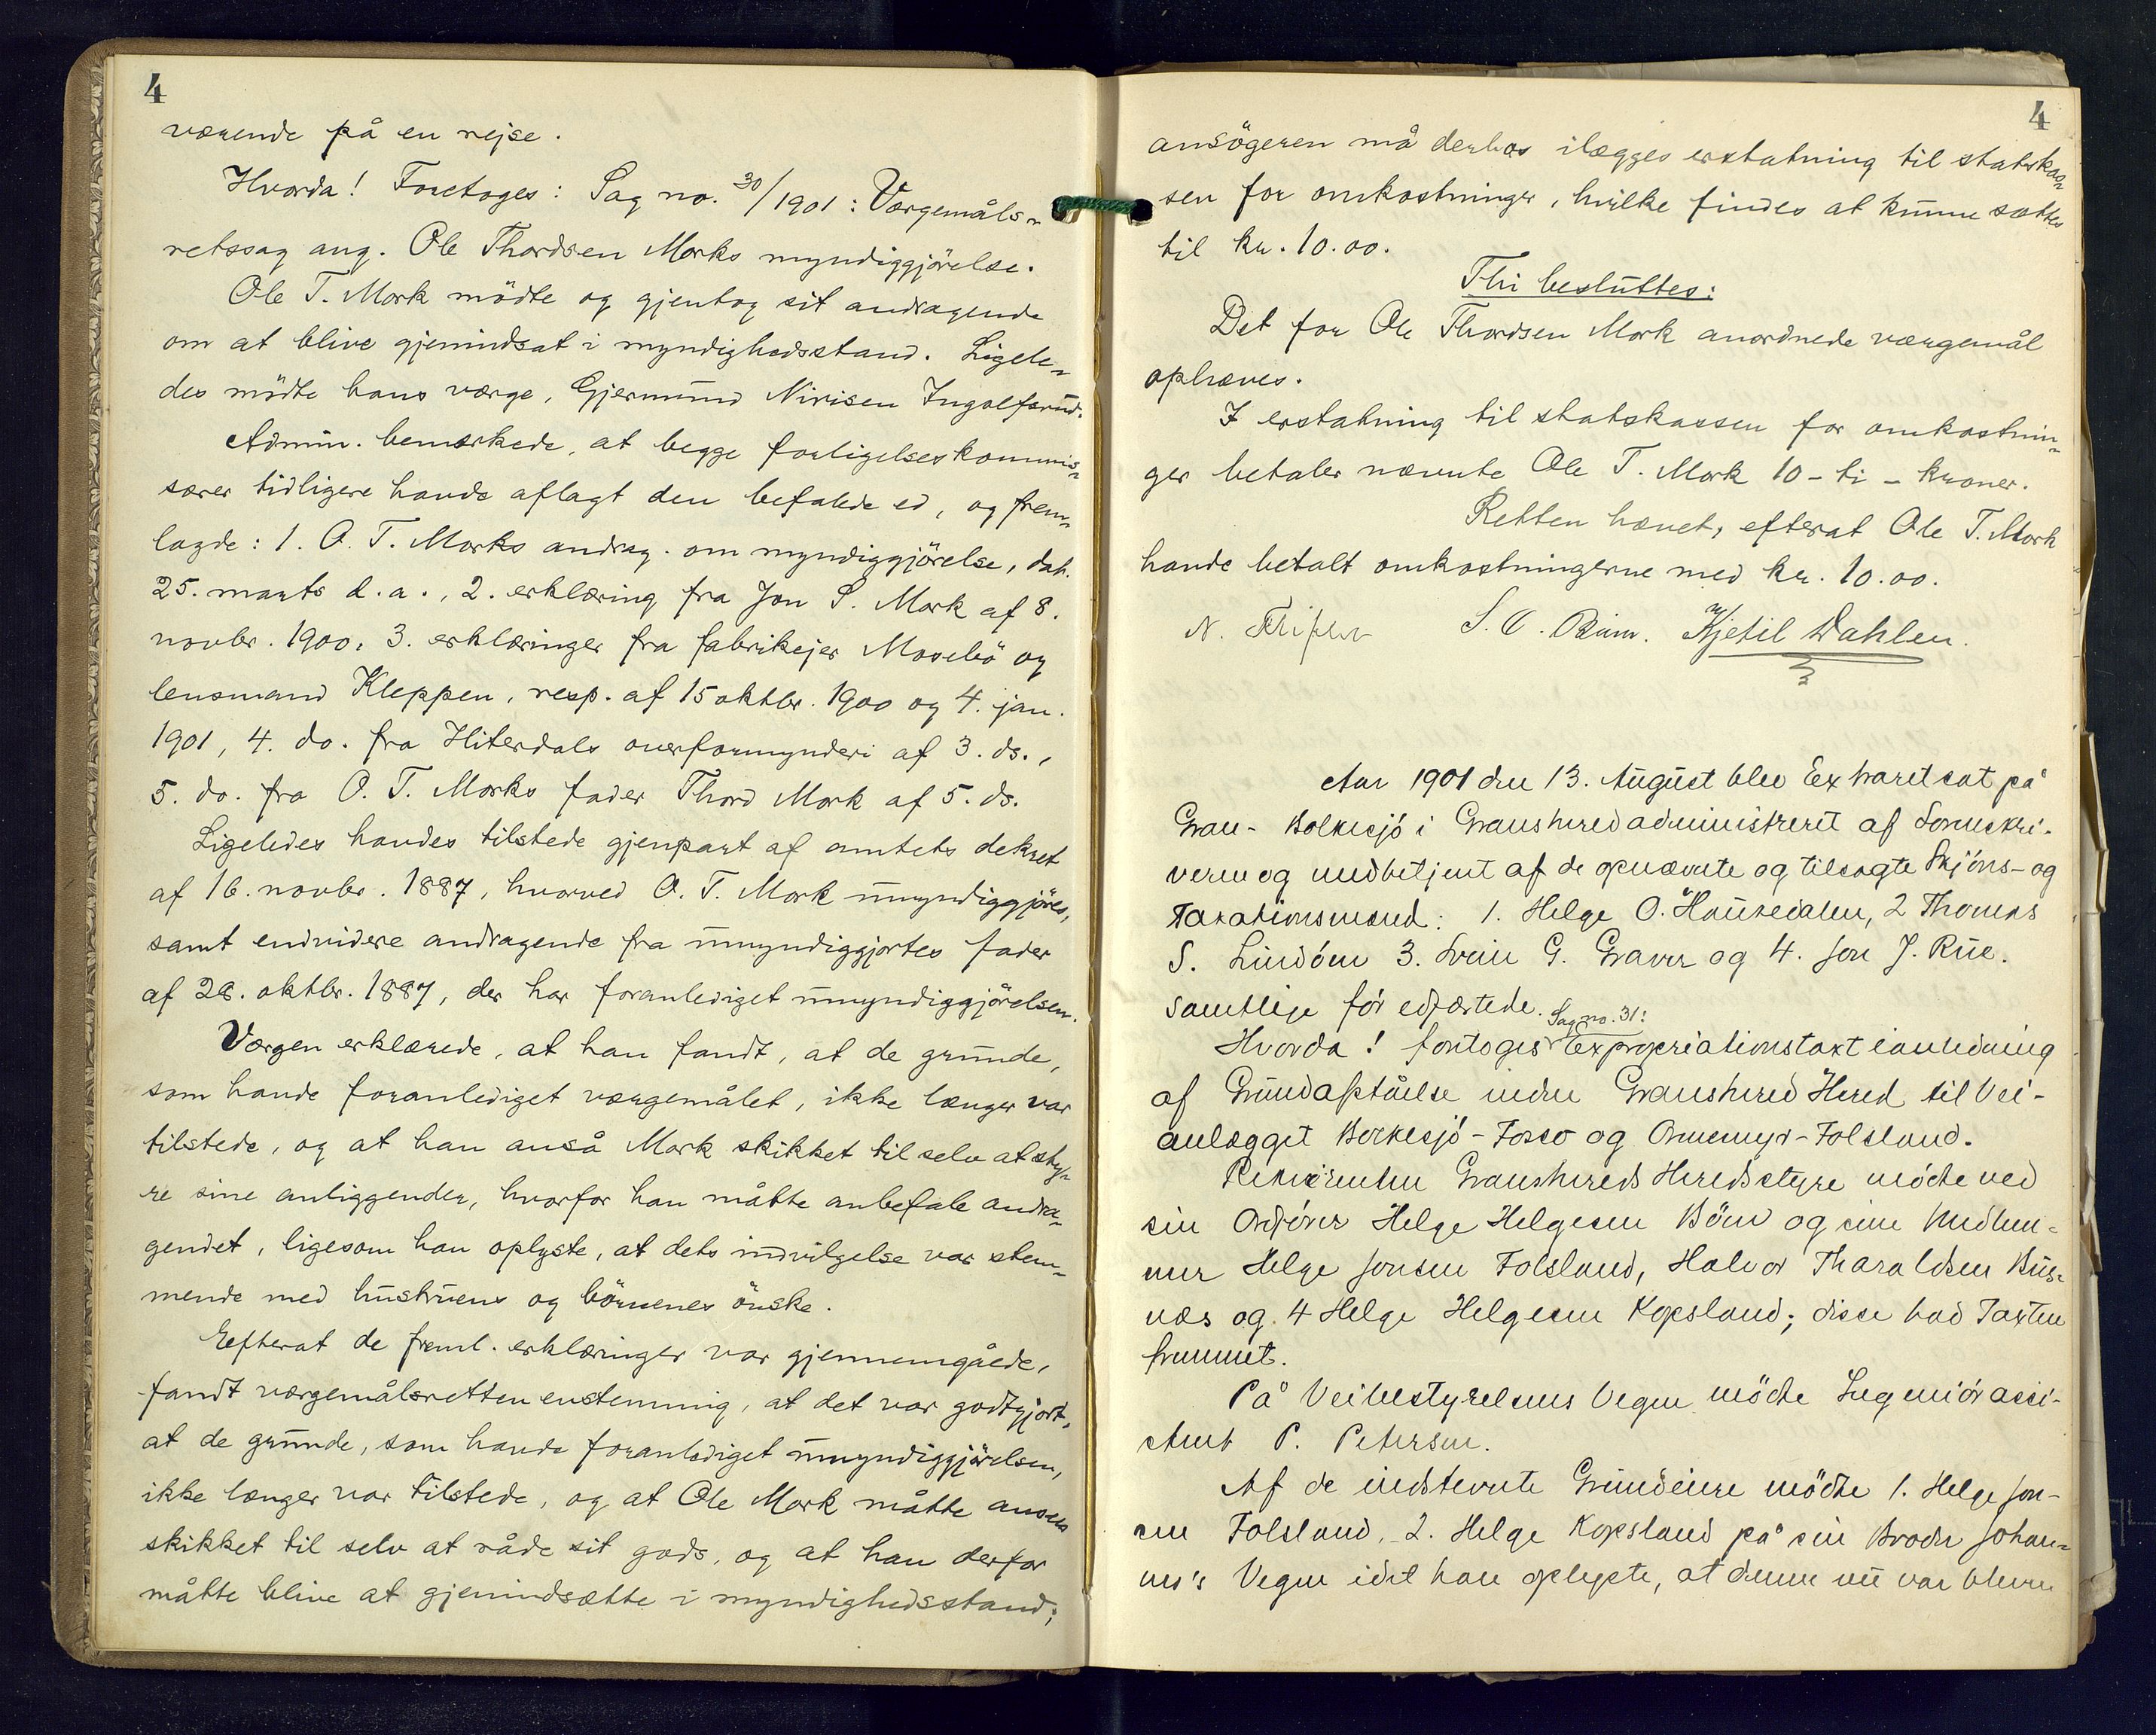 4
værende på en rejse.
Hvorda! Foretoges: Sag no. 30/1901: Værgemåls-
retssag ang. Ole Thordsen Morks myndiggjörelse.
Ole T. Mork mödte og gjentog sit andragende
om at blive gjenindsat i myndighedsstand. Ligele-
des mödte hans værge, Gjermund Nirisen Ingolfsrud.
Admin. bemærkede, at begge forligelseskommis-
særer tidligere havde aflagt den befalede ed, og frem-
lagde: 1. O. T. Morks andrag. om myndiggjörelse, dat.
25. marts d.a., 2. erklæring fra Jon S. Mork af 8.
novbr. 1900, 3. erklæringer fra fabrikejer Mosebö og
lensmand Kleppen, resp. af 15 oktbr. 1900 og 4. jan.
1901, 4. do. fra Hiterdals overformynderi af 3. ds.,
5. do. fra O. T. Morks fader Thord Mork af 5. ds.
Ligeledes havdes tilstede gjenpart af amtets dekret
af 16. novbr. 1887, hvorved O. T. Mork umyndiggjöres,
samt endvidere andragende fra umyndiggjortes fader
af 28. oktbr. 1887, der har foranlediget umyndiggjörelsen.
Værgen erklærede, at han fandt, at de grunde,
som havde foranlediget værgemålet, ikke længer var
tilstede, og at han anså Mork skikket til selv at sty-
re sine anliggender, hvorfor han måtte anbefale andra-
gendet, ligesom han oplyste, at dets indvilgelse var stem-
mende med hustruens og börnenes önske.
Eefterat de freml. erklæringer var gjennemgåede,
fandt værgemålsretten enstemmig, at det var godtgjort,
at de grunde, som havde foranlediget umyndiggjörelsen,
ikke længer var tilstede, og at Ole Mork måtte ansees
skikket til selv at råde sit gods, og at han derfor
måtte blive at gjenindsætte i myndighedsstand;
4
ansögeren må derhos ilægges erstatning til statskas-
sen for omkostninger, hvilke findes at kunne sættes
til kr. 10.00.
Thi besluttes:
Det for Ole Thordsen Mork anordnede værgemål
ophæves.
I erstatning til statskassen for omkostnin-
ger betaler nævnte Ole T. Mork 10 - ti - kroner.
Retten hævet, efterat Ole T. Mork
havde betalt omkostningerne med kr. 10.00.
N. S. O. Kjetil Dahlen.
Aar 1901 den 13. August blev Ex traret sat på
Gran- Bolkesjó i Gransherred administreret af Sorenskri-
veren og medbetjent af de opnævnte og tilsagte Skjóns- og
Taxationsmænd: 1. Helge O. Haukedalen, 2 Thomas
S. Lindóen 3. Svein G. Graver og 4. Jon J. Rue.
samtlige fór edfæstede.
Sag no. 31:
Hvorda! foretoges Expropriationstaxt i anledning
af Grundafståelse inden Gransherred Herred til Vei-
anlægget Bolkesjó - Fosso og Ormemyr - Folseland.
Rekvirenten Gransherreds Herredsstyre mödte ved
sin Ordfórer Helge Helgesen Böen og sine Medlem-
mer Helge Jonsen Folseland, Halvor Tharaldsen Bus-
næs og 4 Helge Helgesen Kopsland; disse bad Taxten
fremmet.
På Veibestyrelsens Vegne mödte Ingeniórassi-
stent P. Petersen.
Af de indstevnte Grundeiere mödte 1. Helge Jon-
sen Folseland, 2. Helge Kopsland på sin Broder Johan-
nes's Vegne idet han oplyste, at denne nu var bleven